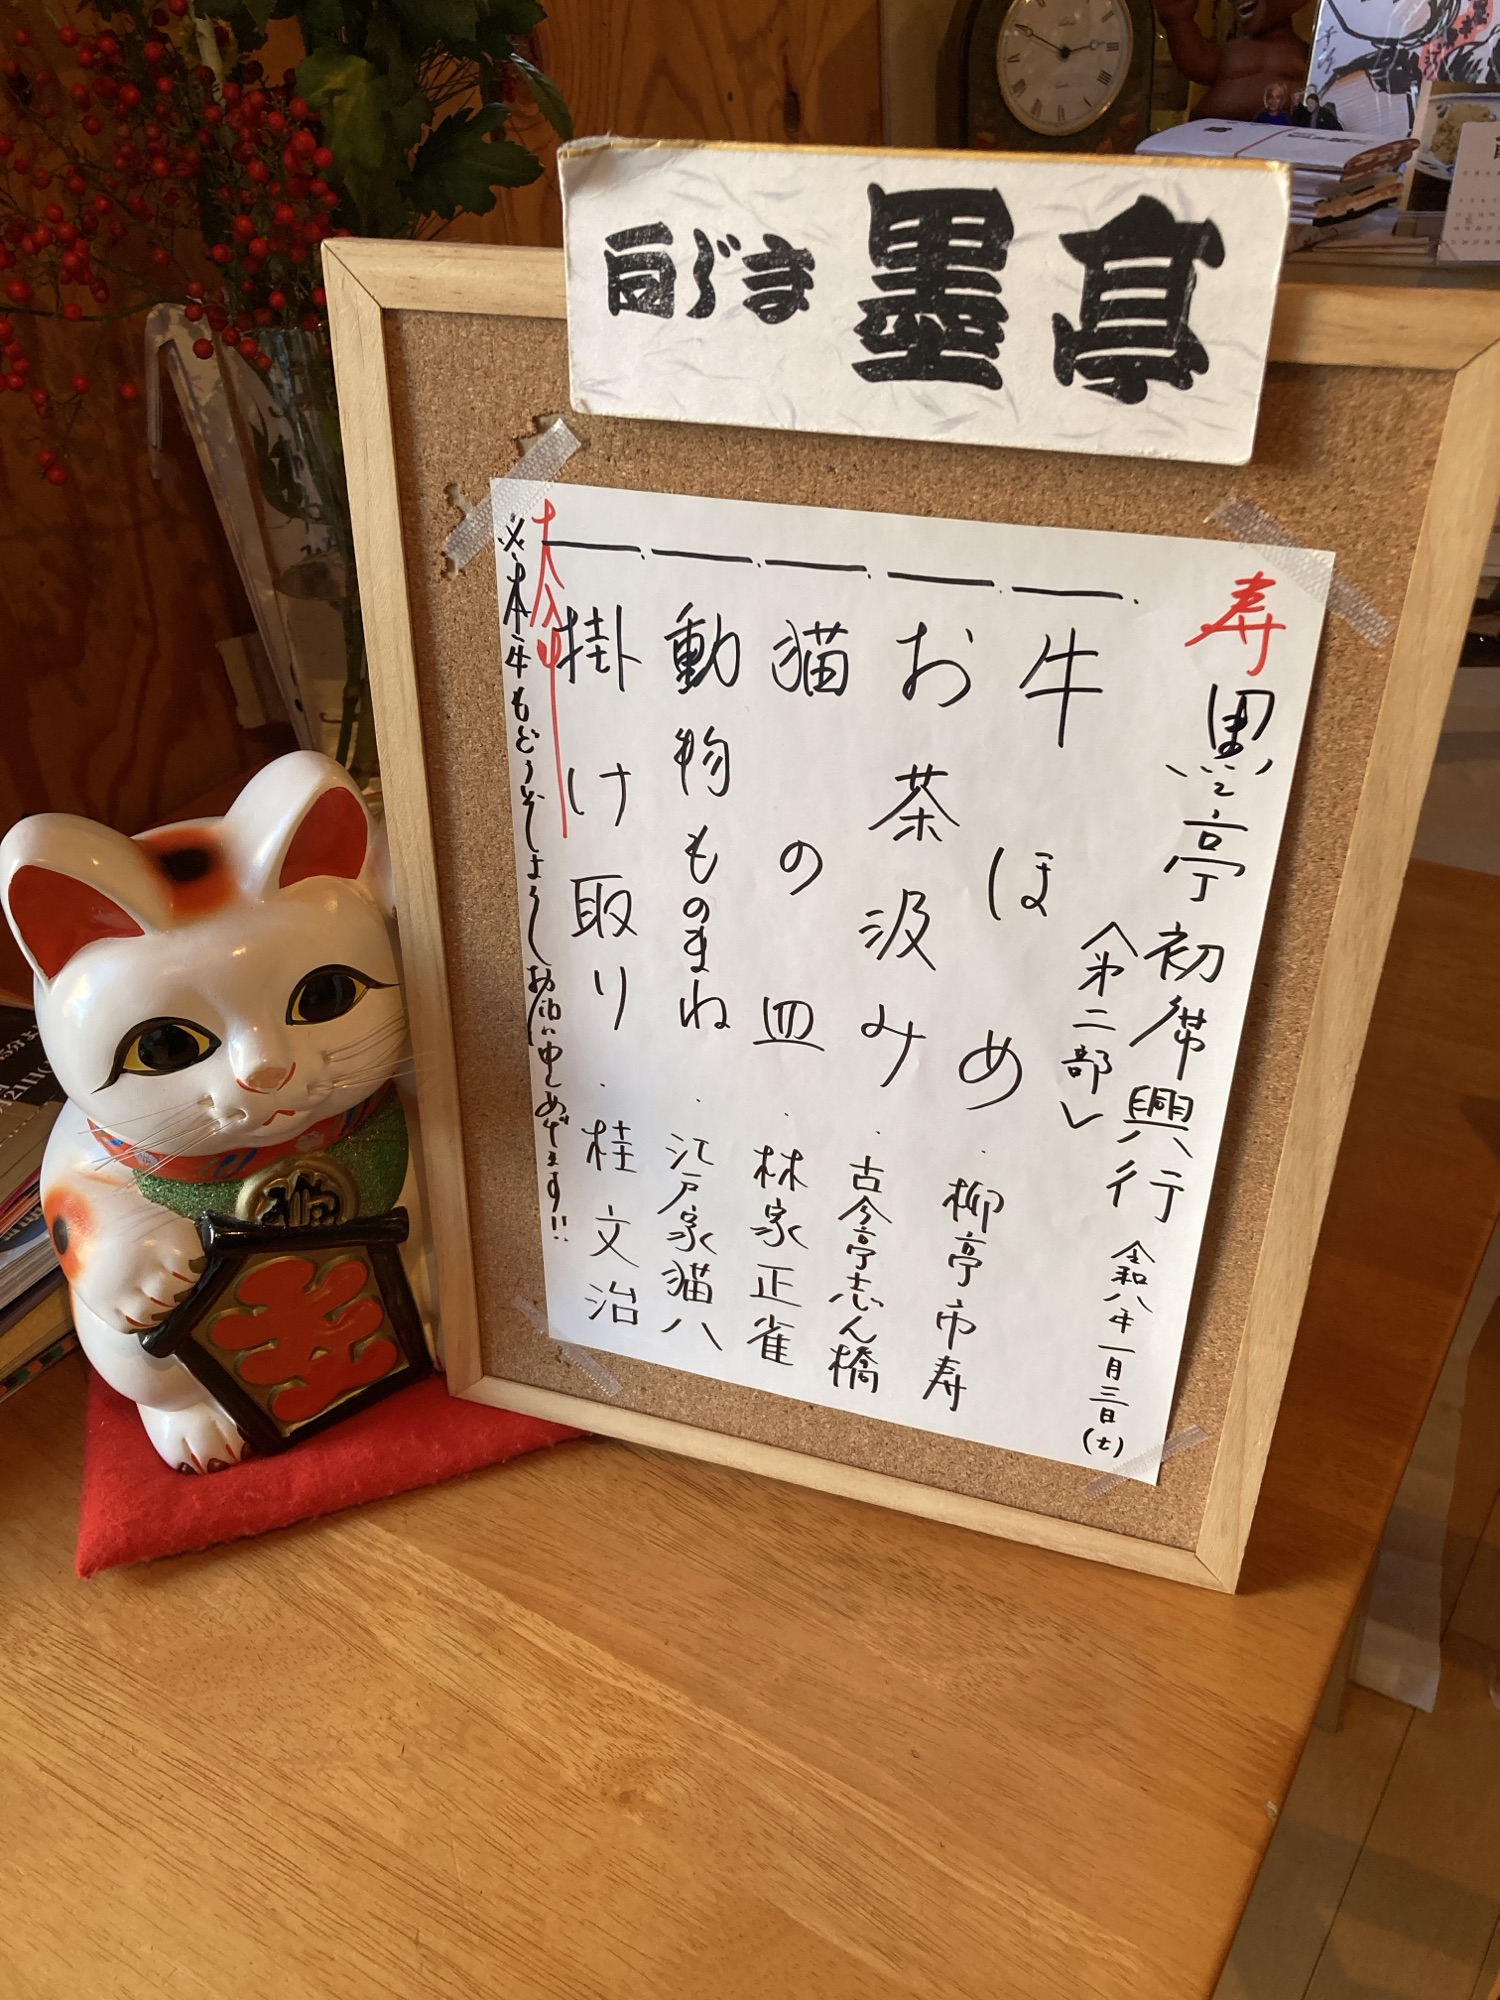 百じま 墨亭
寿 墨亭初席興行 令和八年一月三日(土)
〈第二部〉
一、牛ほめ・柳亭市寿
一、お茶汲み・古今亭志ん橋
一、猫の皿・林家正雀
一、動物ものまね・江戸家猫八
一、掛け取り・桂文治
大入叶
※本年もどうぞよろしくお願い申し上げます!!